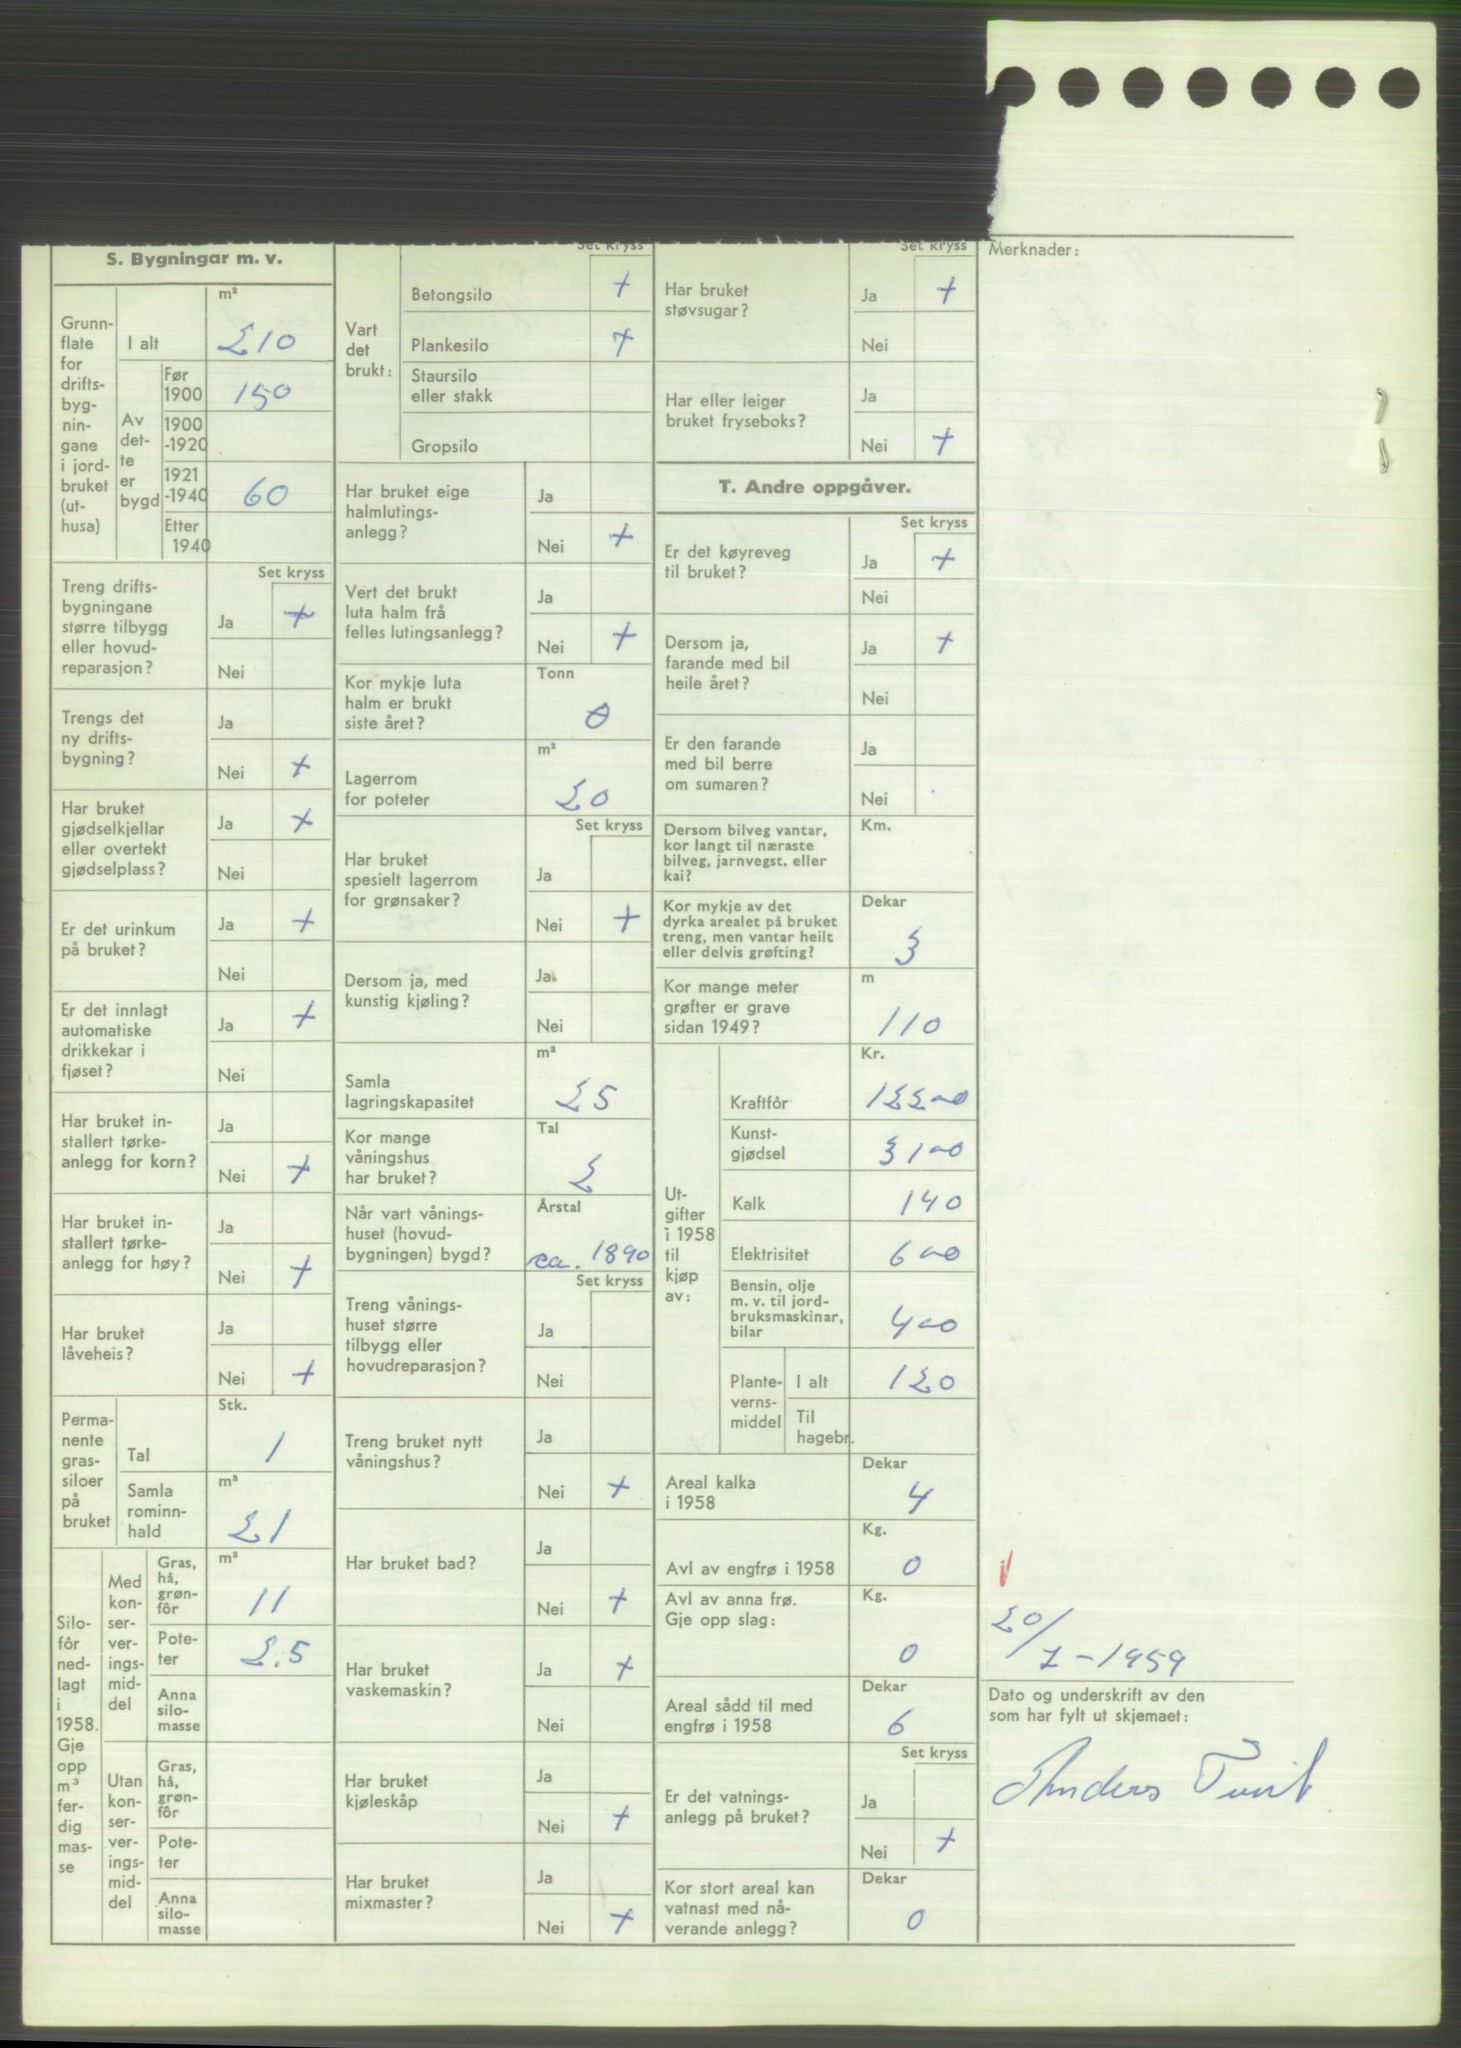 S. Bygningar m. v.
Grunn-
flate
for
drifts-
byg-
nin-
gane
i jord-
bruket
(ut-
husa)
m²
I alt 210
Av
det-
te
er
bygd
Før
1900 150
1900
-1920
1921
-1940 60
Etter
1940
Set kryss
Treng drifts-
bygningane
større tilbygg
eller hovud-
reparasjon?
Ja +
Nei
Trengs det
ny drifts-
bygning?
Ja
Nei +
Har bruket
gjødselkjellar
eller overtekt
gjødselplass?
Ja +
Nei
Er det urinkum
på bruket?
Ja +
Nei
Er det innlagt
automatiske
drikkekar i
fjøset?
Ja +
Nei
Har bruket in-
stallert tørke-
anlegg for korn?
Ja
Nei +
Har bruket in-
stallert tørke-
anlegg for høy?
Ja
Nei +
Har bruket
låveheis?
Ja
Nei +
Perma-
nente
gras-
siloer
på
bruket
Stk.
Tal 1
m³
Samla
rominn-
hald 21
Silo-
fôr
ned-
lagt
i
1958.
Gje
opp
m³
fer-
dig
mas-
se
Med
kon-
ser-
ver-
ings-
mid-
del
m³
Gras,
hå,
grøn-
fôr 11
Pote-
ter 2.5
Anna
silo-
masse
Utan
kon-
ser-
ver-
ings-
mid-
del
Gras,
hå,
grøn-
fôr
Pote-
ter
Anna
silo-
masse
Set kryss
Vart
det
brukt:
Betongsilo +
Plankesilo +
Staursilo
eller stakk
Gropsilo
Har bruket eige
halmlutings-
anlegg?
Ja
Nei +
Vert det brukt
luta halm frå
felles lutingsanlegg?
Ja
Nei +
Kor mykje luta
halm er brukt
siste året?
Tonn
0
Lagerrom
for poteter
m²
20
Set kryss
Har bruket
spesielt lagerrom
for grønsaker?
Ja
Nei +
Dersom ja, med
kunstig kjøling?
Ja
Nei
Samla
lagringskapasitet
m³
25
Kor mange
våningshus
har bruket?
Tal
2
Når vart vånings-
huset (hovud-
bygningen) bygd?
Årstal
ca. 1890
Set kryss
Treng vånings-
huset større
tilbygg eller
hovudreparasjon?
Ja
Nei
Treng bruket nytt
våningshus?
Ja
Nei +
Har bruket bad?
Ja
Nei +
Har bruket
vaskemaskin?
Ja +
Nei
Har bruket
kjøleskåp
Ja
Nei +
Har bruket
mixmaster?
Ja
Nei +
Set kryss
Har bruket
støvsugar?
Ja +
Nei
Har eller leiger
bruket fryseboks?
Ja
Nei +
T. Andre oppgåver.
Set kryss
Er det køyreveg
til bruket?
Ja +
Nei
Dersom ja,
farande med bil
heile året?
Ja +
Nei
Er den farande
med bil berre
om sumaren?
Ja
Nei
Dersom bilveg vantar,
kor langt til næraste
bilveg, jarnvegst. eller
kai?
Km.
Kor mykje av det
dyrka arealet på bruket
treng, men vantar heilt
eller delvis grøfting?
Dekar
3
Kor mange meter
grøfter er grave
sidan 1949?
m
110
Ut-
gifter
i 1958
til
kjøp
av:
Kr.
Kraftfôr 12200
Kunst-
gjødsel 3100
Kalk 140
Elektrisitet 600
Bensin, olje
m. v. til jord-
bruksmaskinar,
bilar 400
Plante-
verns-
middel
I alt 120
Til
hagebr.
Areal kalka
i 1958
Dekar
4
Avl av engfrø i 1958
Kg.
0
Avl av anna frø.
Gje opp slag:
Kg.
0
Areal sådd til med
engfrø i 1958
Dekar
6
Set kryss
Er det vatnings-
anlegg på bruket?
Ja
Nei +
Kor stort areal kan
vatnast med nå-
verande anlegg?
Dekar
0
Merknader:
20/7-1959
Dato og underskrift av den
som har fylt ut skjemaet:
Anders Tveit